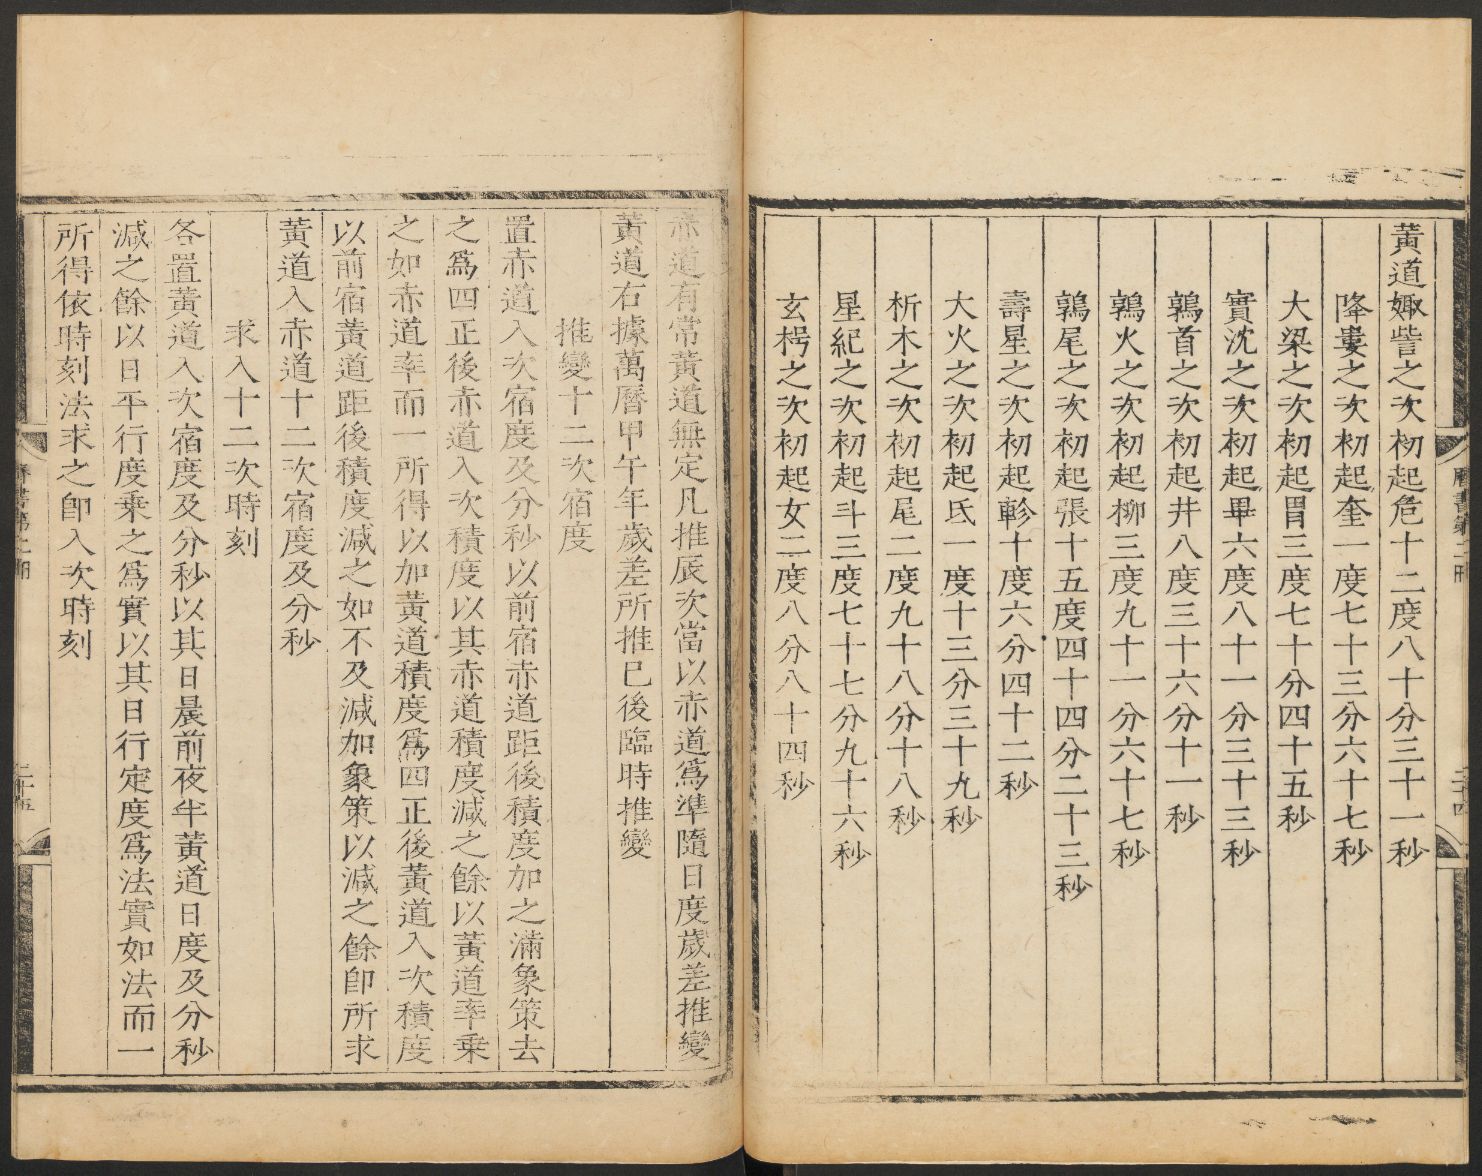 黃道娵訾之次初起危十二度八十分三十一秒
降婁之次初起奎一度七十三分六十七秒
大梁之次初起胃三度七十分四十五秒
實沈之次初起畢六度八十一分三十三秒
鶉首之次初起井八度三十六分十一秒
鶉火之次初起柳三度九十一分六十七秒
鶉尾之次初起張十五度四十四分二十三秒
壽星之次初起軫十度六分四十二秒
大火之次初起氐一度十三分三十九秒
析木之次初起尾二度九十八分十八秒
星紀之次初起斗三度七十七分九十六秒
玄枵之次初起女二度八分八十四秒
赤道有常黃道無定凡推辰次當以赤道爲準隨日度歲差推變
黃道右據萬曆甲午年歲差所推已後臨時推變
推變十二次宿度
置赤道入次宿度及分秒以前宿赤道距後積度加之滿象策去
之爲四正後赤道入次積度以其赤道積度減之餘以黃道率乘
之如赤道率而一所得以加黃道積度爲四正後黃道入次積度
以前宿黃道距後積度減之如不及減加象策以減之餘卽所求
黃道入赤道十二次宿度及分秒
求入十二次時刻
各置黃道入次宿度及分秒以其日晨前夜半黃道日度及分秒
減之餘以日平行度乘之爲實以其日行定度爲法實如法而一
所得依時刻法求之卽入次時刻